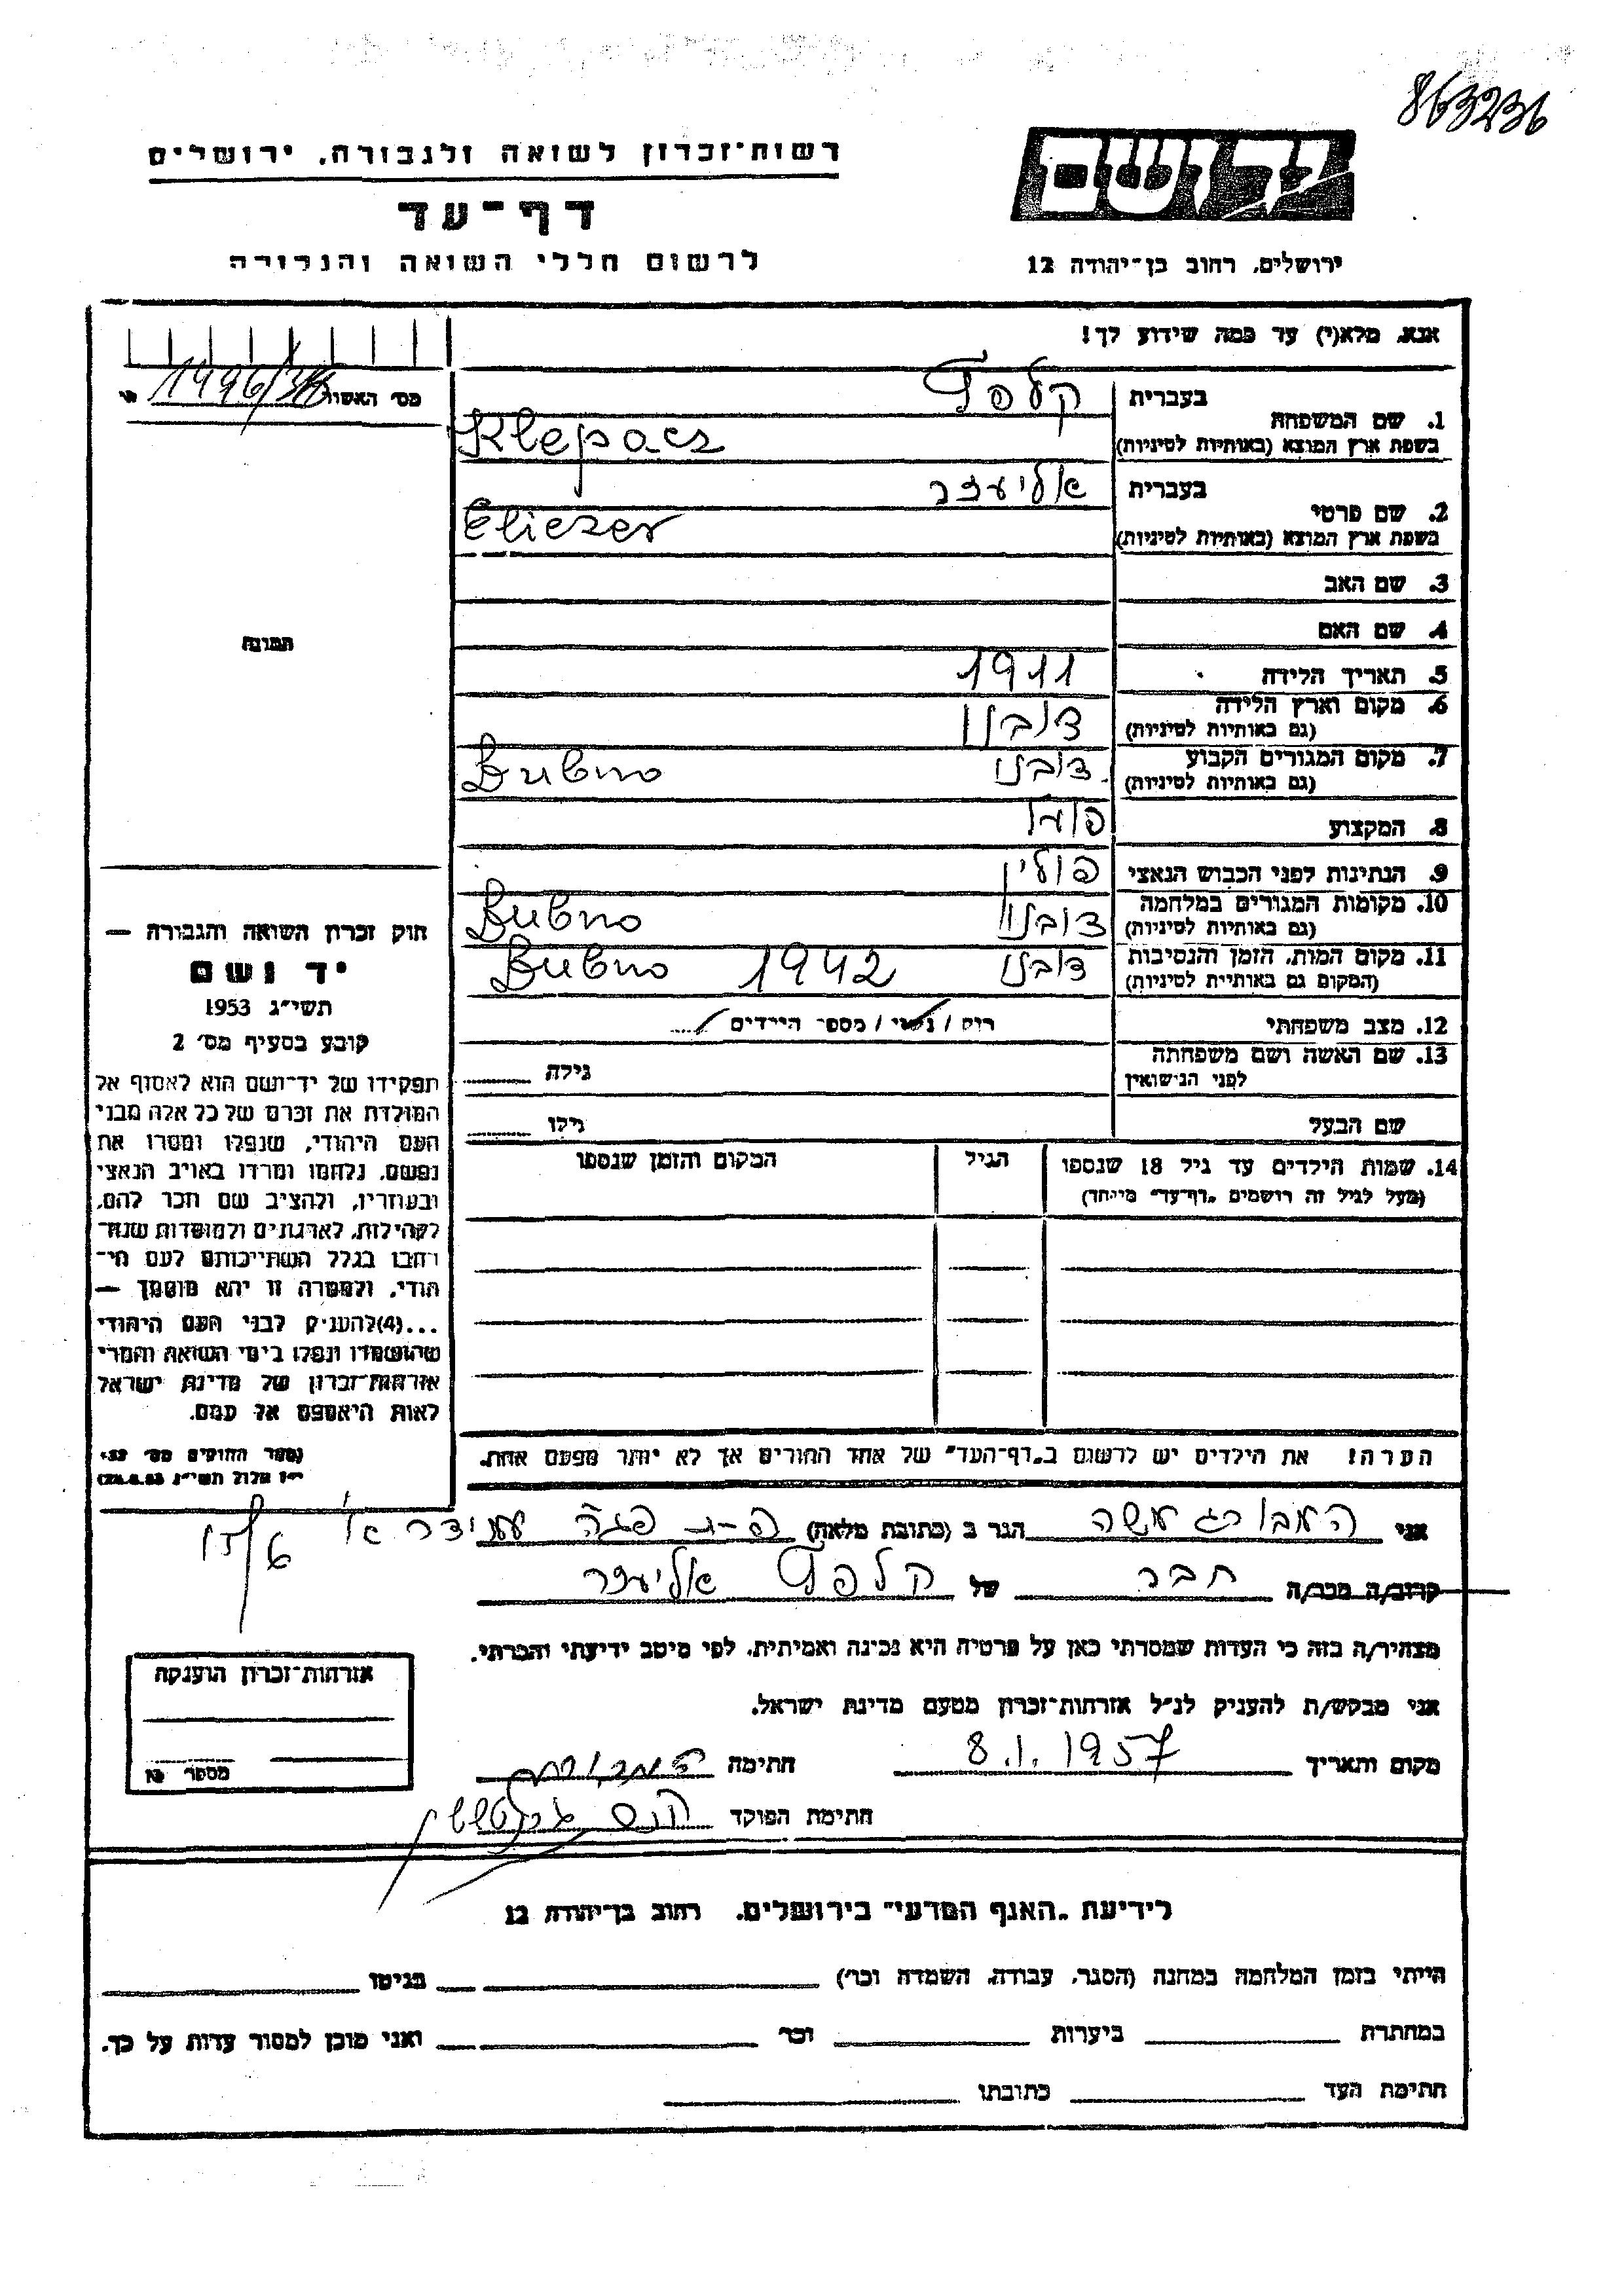 863236
רשות־זכרון לשואה ולגבורה, ירושלים
דף־עד
לרשום חללי השואה והגבורה
יד ושם
ירושלים, רחוב בן־יהודה 12
אנא, מלא(י) עד כמה שידוע לך!
מס' האשור
1. שם המשפחה
בעברית
קלפץ
בשפת ארץ המוצא (באותיות לטיניות)
Klepacz
2. שם פרטי
בעברית
אליעזר
בשפת ארץ המוצא (באותיות לטיניות)
Eliezer
3. שם האב
4. שם האם
5. תאריך הלידה 1911
6. מקום וארץ הלידה (גם באותיות לטיניות) דובנו
7. מקום המגורים הקבוע (גם באותיות לטיניות) דובנו Dubno
8. המקצוע פועל
9. הנתינות לפני הכבוש הנאצי פולין
10. מקומות המגורים במלחמה (גם באותיות לטיניות) דובנו Dubno
11. מקום המות, הזמן והנסיבות (המקום גם באותיות לטיניות) דובנו 1942 Dubno
12. מצב משפחתי רווק / נשוי / מספר הילדים
13. שם האשה ושם משפחתה לפני הנישואין גילה
שם הבעל גילו
14. שמות הילדים עד גיל 18 שנספו (מעל לגיל זה רושמים "דף־עד" מיוחד) הגיל המקום והזמן שנספו
הערה! את הילדים יש לרשום ב"דף־העד" של אחד ההורים אך לא יותר מפעם אחת.
תמונה
חוק זכרון השואה והגבורה —
יד ושם
תשי"ג 1953
קובע בסעיף מס' 2
תפקידו של יד־ושם הוא לאסוף אל
המולדת את זכרם של כל אלה מבני
העם היהודי, שנפלו ומסרו את
נפשם, נלחמו ומרדו באויב הנאצי
ובעוזריו, ולהציב שם וזכר להם,
לקהילות, לארגונים ולמוסדות שנח־
רבו בגלל השתייכותם לעם הי־
הודי, ולמטרה זו יהא מוסמך —
...(4) להעניק לבני העם היהודי
שהושמדו ונפלו בימי השואה והמרי
אזרחות־זכרון של מדינת ישראל
לאות היאספם אל עמם.
אני המבורג משה הגר ב (כתובת מלאה) פ-ת פגה עמידר א'
15/6
קרוב/ה מכר/ה חבר של קלפץ אליעזר
מצהיר/ה בזה כי העדות שמסרתי כאן על פרטיה היא נכונה ואמיתית, לפי מיטב ידיעתי והכרתי.
אני מבקש/ת להעניק לנ"ל אזרחות־זכרון מטעם מדינת ישראל.
מקום ותאריך 8.1.1957 חתימה
חתימת הפוקד
אזרחות־זכרון הוענקה
מספר
לידיעת "האגף המדעי" בירושלים, רחוב בן־יהודה 12
הייתי בזמן המלחמה במחנה (הסגר, עבודה, השמדה וכו') בגיטו
במחתרת ביערות וכו' ואני מוכן למסור עדות על כך.
חתימת העד כתובתו